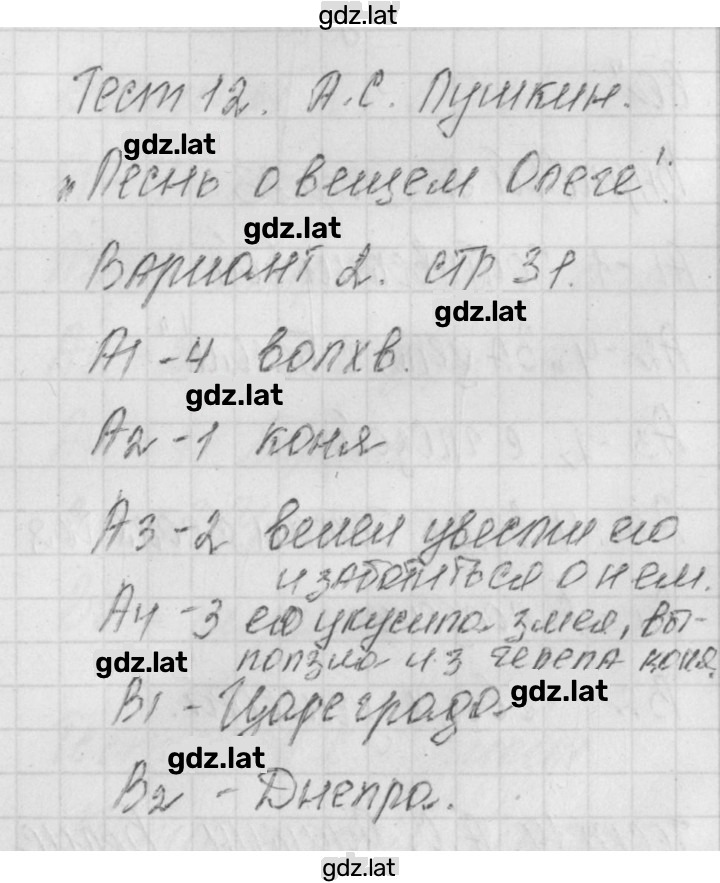 gdz.lat
Тест 12. А.С. Пушкин.
gdz.lat
"Песнь о вещем Олеге".
gdz.lat
Вариант 2. стр 31.
gdz.lat
А1 - 4 волхв.
gdz.lat
А2 - 1 коня
А3 - 2 велел увести его
и заботиться о нем.
А4 - 3 его укусила змея, вы-
gdz.lat
ползла из черепа коня.
gdz.lat
В1 - Цареграда
gdz.lat
В2 - Днепра.
gdz.lat